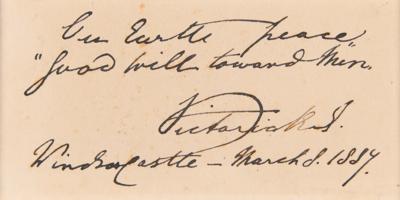 On Earth peace
"good will toward Men.
Victoria R.I.
Windsor Castle – March 8. 1887.